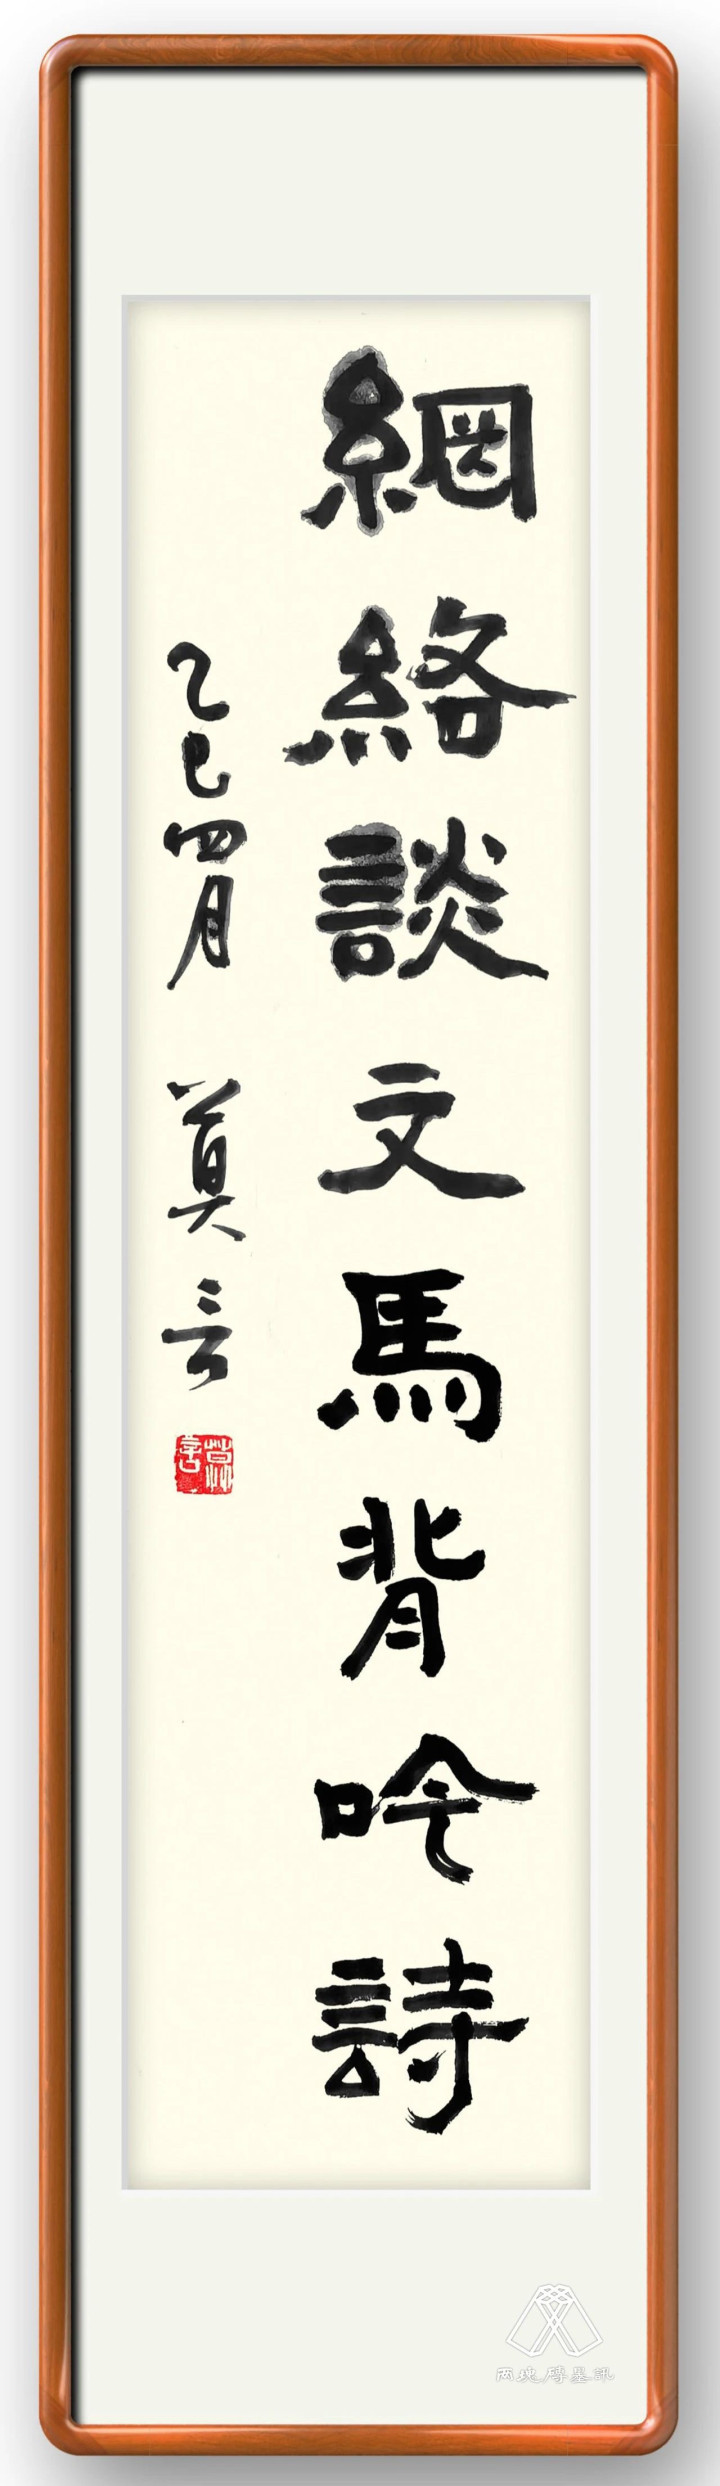 網絡談文馬背吟詩
乙巳四月 莫言
莫言
两块砖墨訊